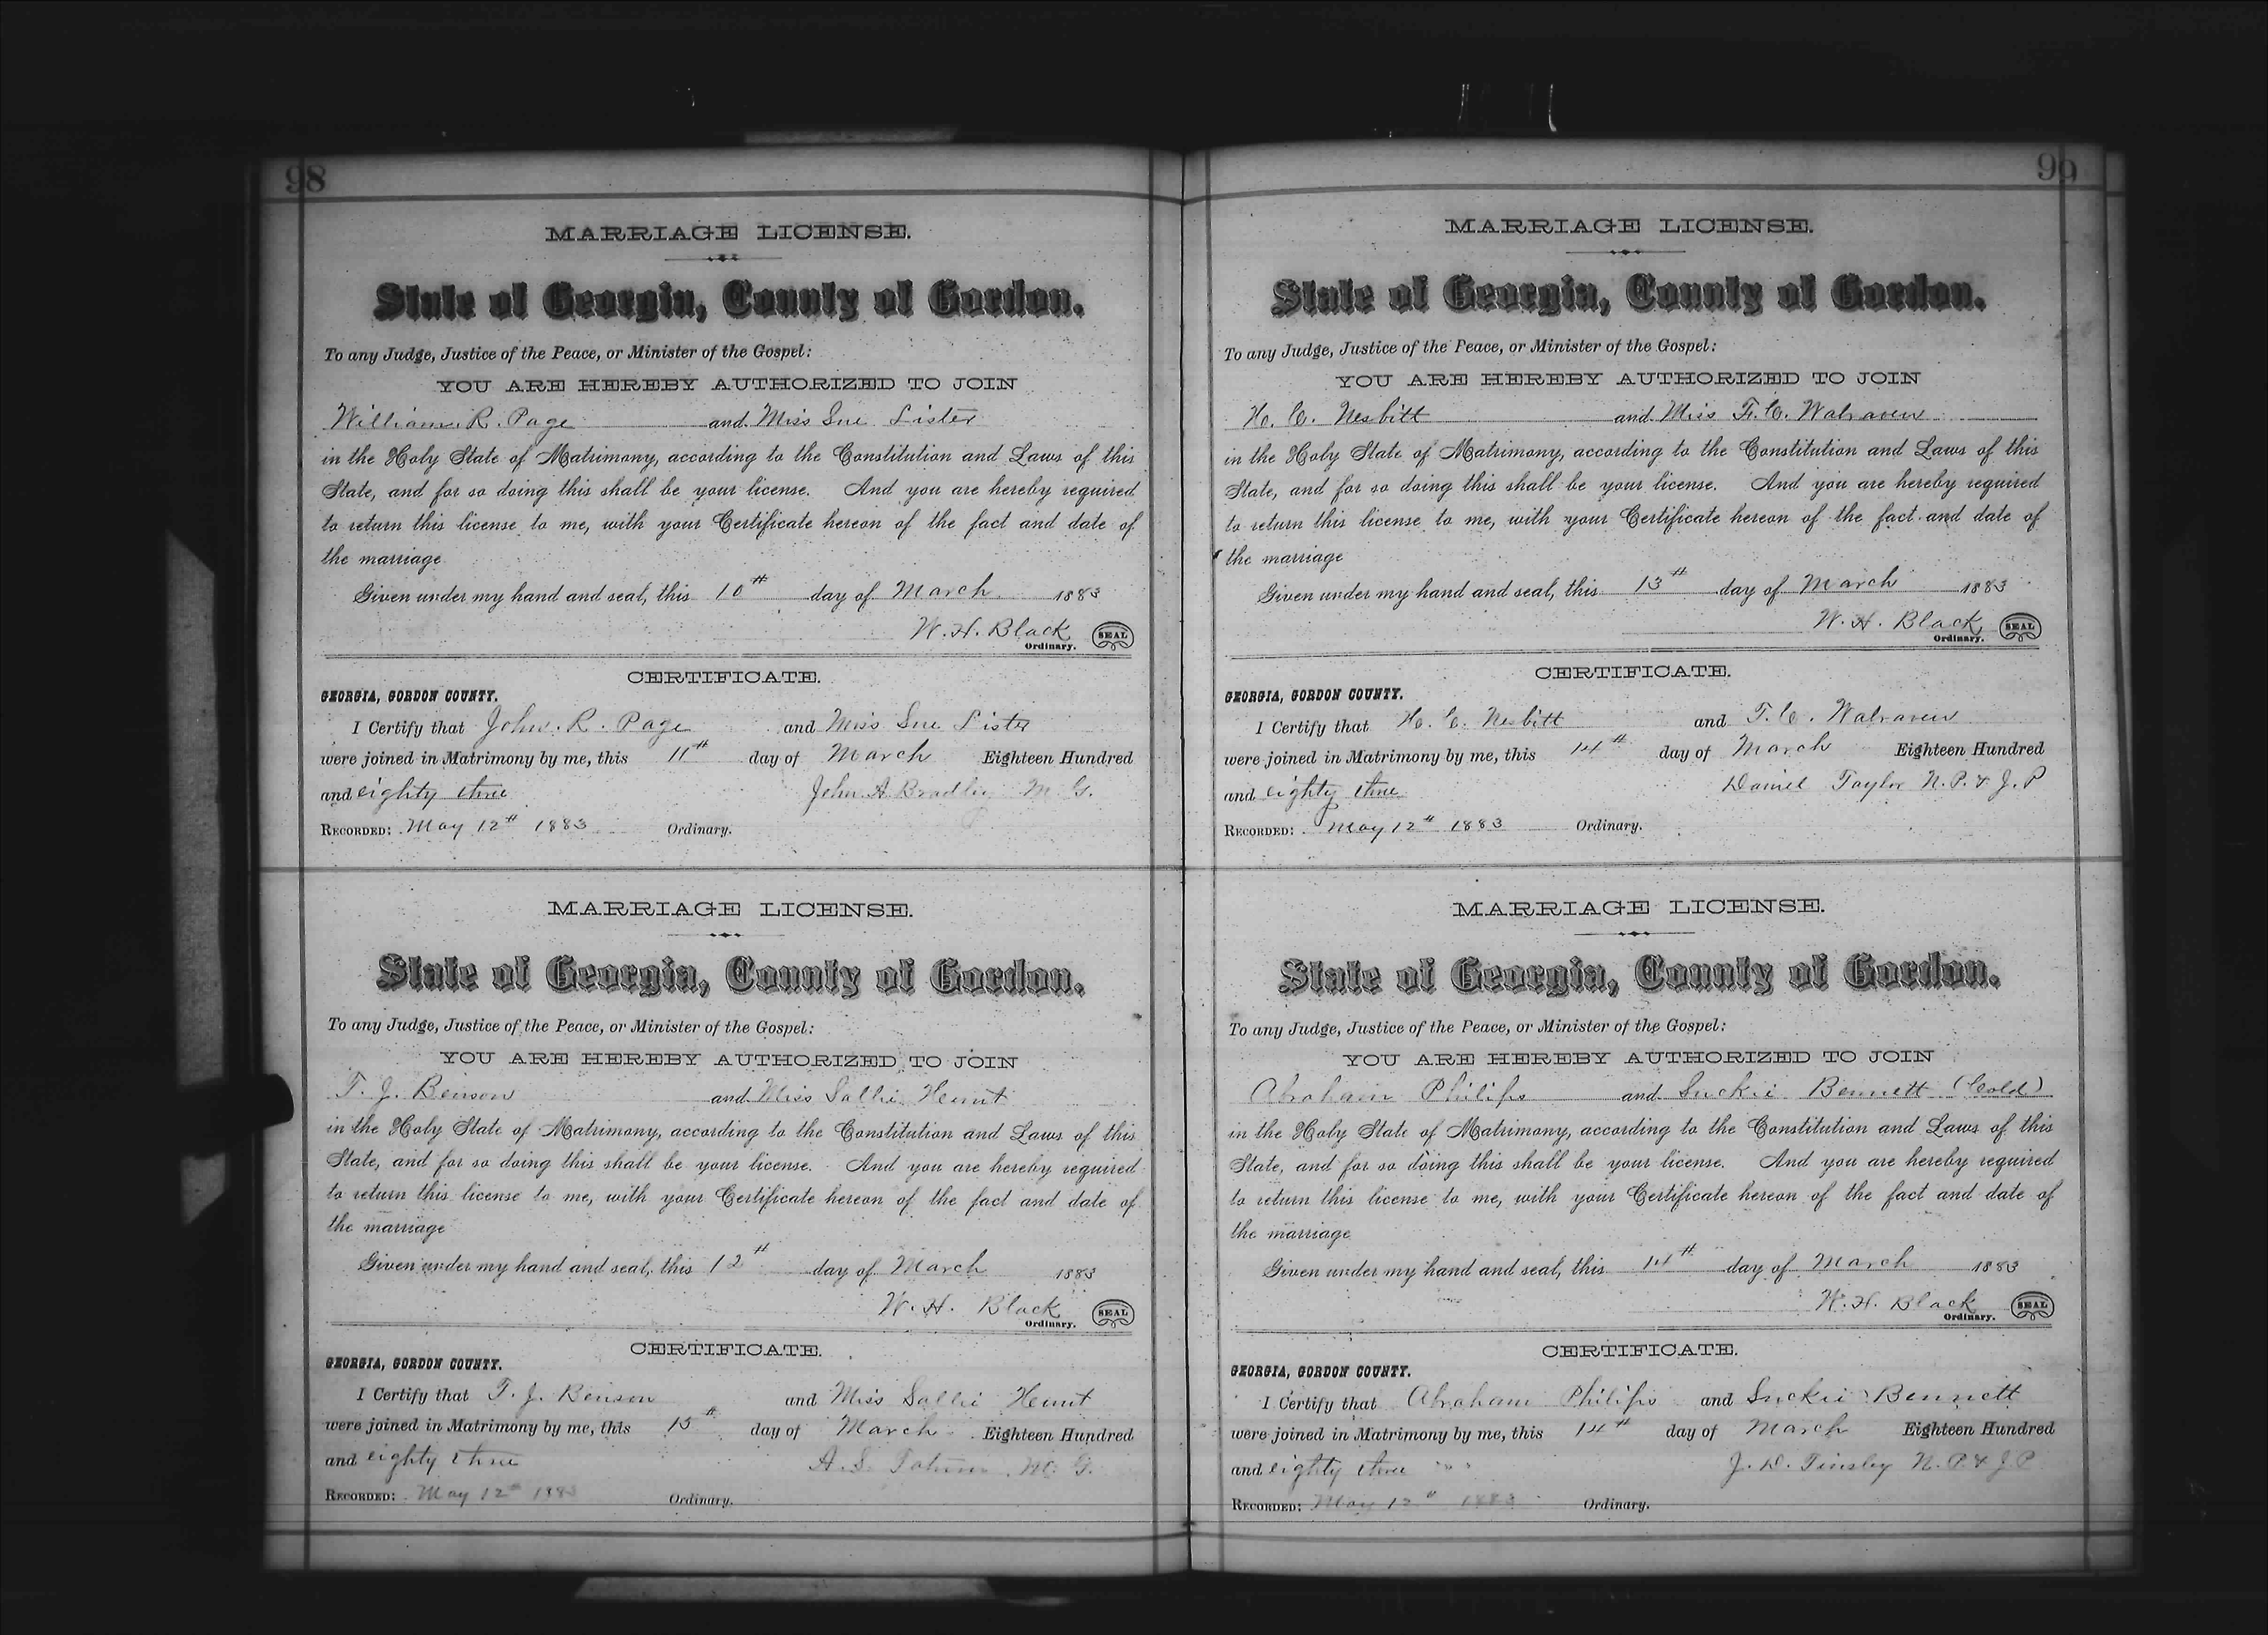 98
MARRIAGE LICENSE.
State of Georgia, County of Gordon.
To any Judge, Justice of the Peace, or Minister of the Gospel:
YOU ARE HEREBY AUTHORIZED TO JOIN
William R. Page and Miss Sue Lister
in the Holy State of Matrimony, according to the Constitution and Laws of this
State, and for so doing this shall be your license. And you are hereby required
to return this license to me, with your Certificate hereon of the fact and date of
the marriage
Given under my hand and seal, this 10th day of March 1883
W. H. Black SEAL
Ordinary.
CERTIFICATE.
GEORGIA, GORDON COUNTY.
I Certify that John. R. Page and Miss Sue Lister
were joined in Matrimony by me, this 11th day of March Eighteen Hundred
and eighty three John A Bradley M. G.
RECORDED: May 12th 1883 Ordinary.
MARRIAGE LICENSE.
State of Georgia, County of Gordon.
To any Judge, Justice of the Peace, or Minister of the Gospel:
YOU ARE HEREBY AUTHORIZED TO JOIN
T. J. Benson and Miss Sallie
in the Holy State of Matrimony, according to the Constitution and Laws of this
State, and for so doing this shall be your license. And you are hereby required
to return this license to me, with your Certificate hereon of the fact and date of
the marriage
Given under my hand and seal, this 12th day of March 1883
W. H. Black SEAL
Ordinary.
CERTIFICATE.
GEORGIA, GORDON COUNTY.
I Certify that T. J. Benson and Miss Sallie
were joined in Matrimony by me, this 15th day of March Eighteen Hundred
and eighty three A. S. M. G.
RECORDED: May 12th 1883 Ordinary.
99
MARRIAGE LICENSE.
State of Georgia, County of Gordon.
To any Judge, Justice of the Peace, or Minister of the Gospel:
YOU ARE HEREBY AUTHORIZED TO JOIN
H. C. Nesbitt and Miss F. C. Walraven
in the Holy State of Matrimony, according to the Constitution and Laws of this
State, and for so doing this shall be your license. And you are hereby required
to return this license to me, with your Certificate hereon of the fact and date of
the marriage
Given under my hand and seal, this 13th day of March 1883
W. H. Black SEAL
Ordinary.
CERTIFICATE.
GEORGIA, GORDON COUNTY.
I Certify that H. C. Nesbitt and F. C. Walraven
were joined in Matrimony by me, this 14th day of March Eighteen Hundred
and eighty three Daniel Taylor N. P. & J. P
RECORDED: May 12th 1883 Ordinary.
MARRIAGE LICENSE.
State of Georgia, County of Gordon.
To any Judge, Justice of the Peace, or Minister of the Gospel:
YOU ARE HEREBY AUTHORIZED TO JOIN
Abraham Philips and Suckie Bennett (Cold)
in the Holy State of Matrimony, according to the Constitution and Laws of this
State, and for so doing this shall be your license. And you are hereby required
to return this license to me, with your Certificate hereon of the fact and date of
the marriage
Given under my hand and seal, this 14th day of March 1883
W. H. Black SEAL
Ordinary.
CERTIFICATE.
GEORGIA, GORDON COUNTY.
I Certify that Abraham Philips and Suckie Bennett
were joined in Matrimony by me, this 14th day of March Eighteen Hundred
and eighty three J. D. Tinsley N. P. & J. P
RECORDED: May 12th 1883 Ordinary.